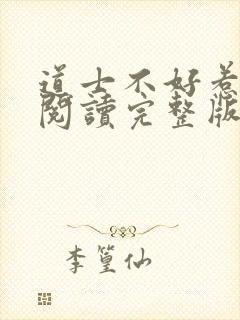 道士不好惹
閱讀完整版
李篁仙